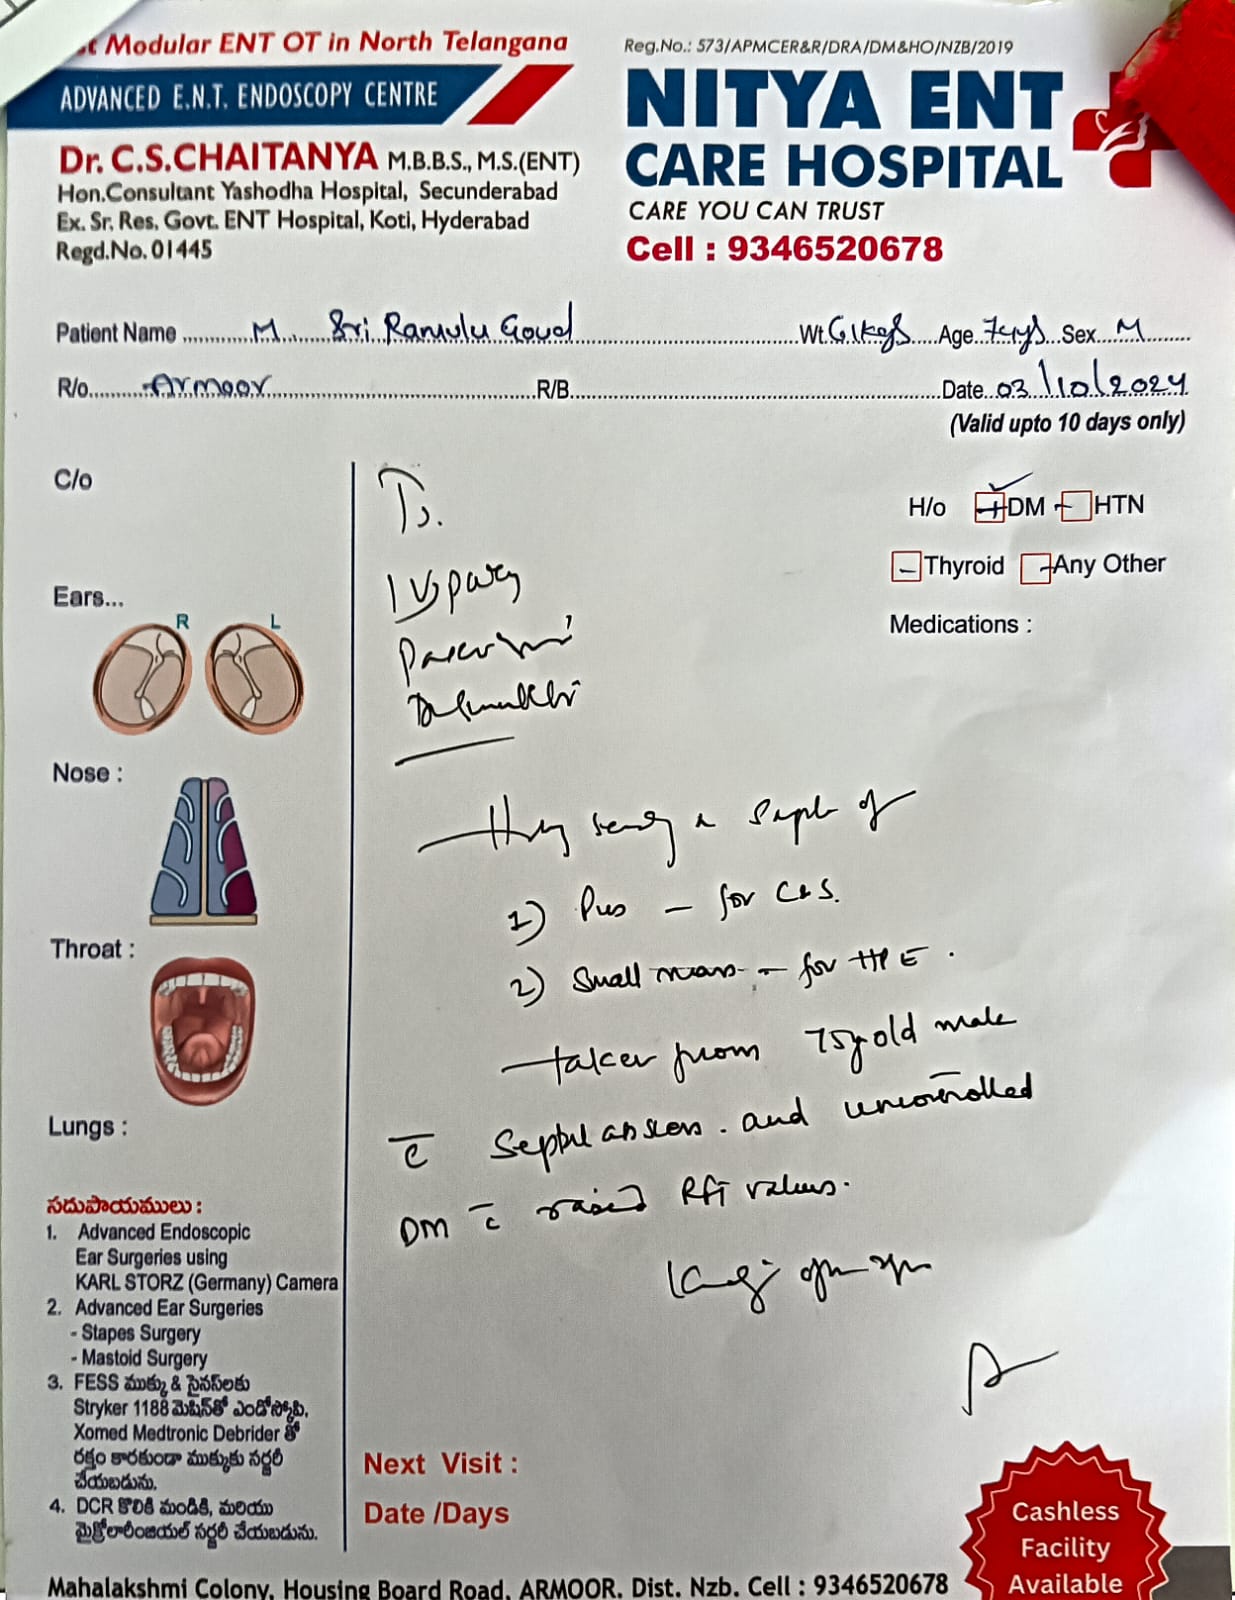 t Modular ENT OT in North Telangana
ADVANCED E.N.T. ENDOSCOPY CENTRE
Dr. C.S.CHAITANYA M.B.B.S., M.S.(ENT)
Hon.Consultant Yashodha Hospital, Secunderabad
Ex. Sr. Res. Govt. ENT Hospital, Koti, Hyderabad
Regd.No. 01445
Reg.No.: 573/APMCER&R/DRA/DM&HO/NZB/2019
NITYA ENT
CARE HOSPITAL
CARE YOU CAN TRUST
Cell : 9346520678
Patient Name M. Sri Ramulu Goud Wt 61kgs Age 74ys Sex M
R/o Armoor R/B Date 03/10/2024
(Valid upto 10 days only)
C/o
To.
H/o + DM - HTN
- Thyroid - Any Other
Medications :
Ears...
R L
Nose :
Throat :
Lungs :
a of
1) Pus - for C&S.
2) Small mass - for HPE.
taken from 75y old male
c̄ Septal abscess. and uncontrolled
DM c̄ raised RFT values.
సదుపాయములు :
1. Advanced Endoscopic
Ear Surgeries using
KARL STORZ (Germany) Camera
2. Advanced Ear Surgeries
- Stapes Surgery
- Mastoid Surgery
3. FESS ముక్కు & సైనస్‌లకు
Stryker 1188 మెషిన్‌తో ఎండోస్కోపి,
Xomed Medtronic Debrider తో
రక్తం కారకుండా ముక్కుకు సర్జరీ
చేయబడును.
4. DCR కొలికి మండికి, మరియు
మైక్రోలారింజియల్ సర్జరీ చేయబడును.
Next Visit :
Date /Days
Cashless
Facility
Available
Mahalakshmi Colony, Housing Board Road, ARMOOR. Dist. Nzb. Cell : 9346520678